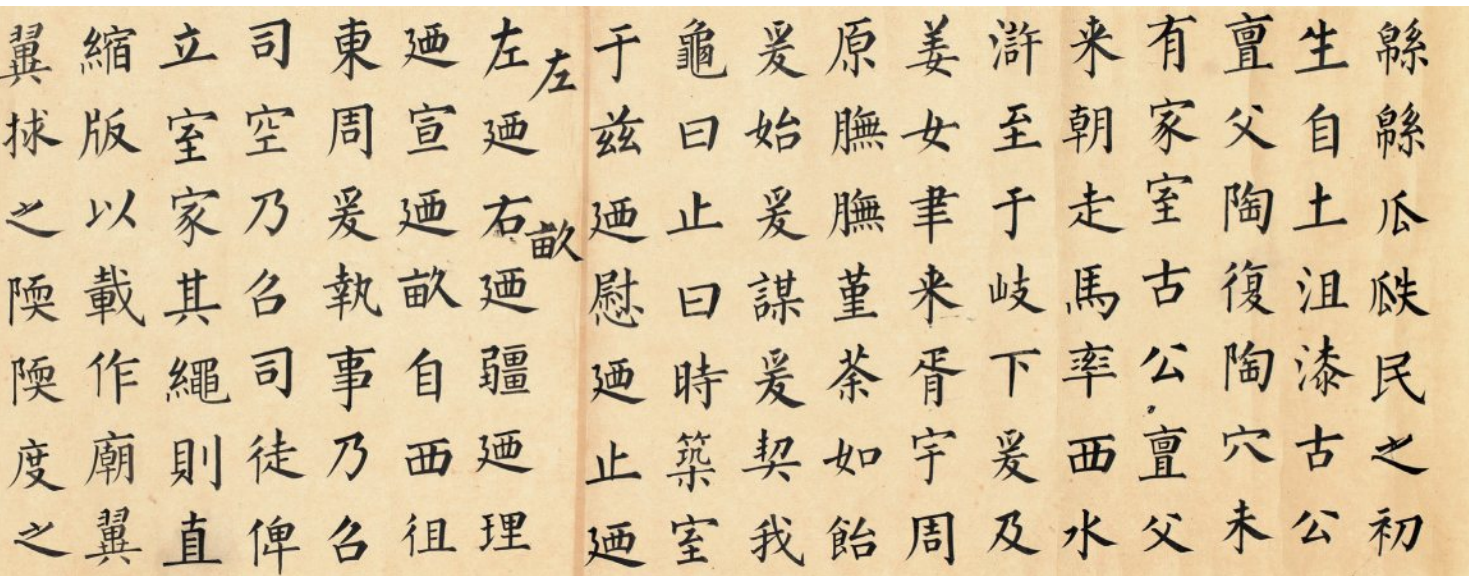 緜緜瓜瓞民之初
生自土沮漆古公
亶父陶復陶穴未
有家室古公亶父
来朝走馬率西水
滸至于岐下爰及
姜女聿来胥宇周
原膴膴菫荼如飴
爰始爰謀爰契我
龜曰止曰時築室
于兹廼慰廼止廼
左畝
左廼右廼疆廼理
廼宣廼畝自西徂
東周爰執事乃召
司空乃召司徒俾
立室家其繩則直
縮版以載作廟翼
翼捄之陾陾度之